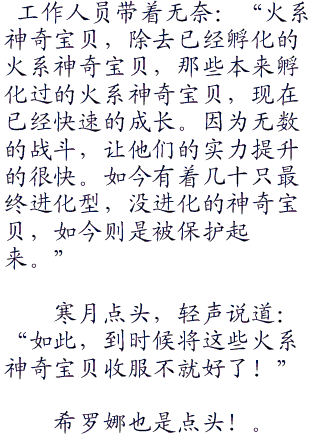 工作人员带着无奈：“火系
神奇宝贝，除去已经孵化的
火系神奇宝贝，那些本来孵
化过的火系神奇宝贝，现在
已经快速的成长。因为无数
的战斗，让他们的实力提升
的很快。如今有着几十只最
终进化型，没进化的神奇宝
贝，如今则是被保护起
来。”
寒月点头，轻声说道：
“如此，到时候将这些火系
神奇宝贝收服不就好了！”
希罗娜也是点头！。